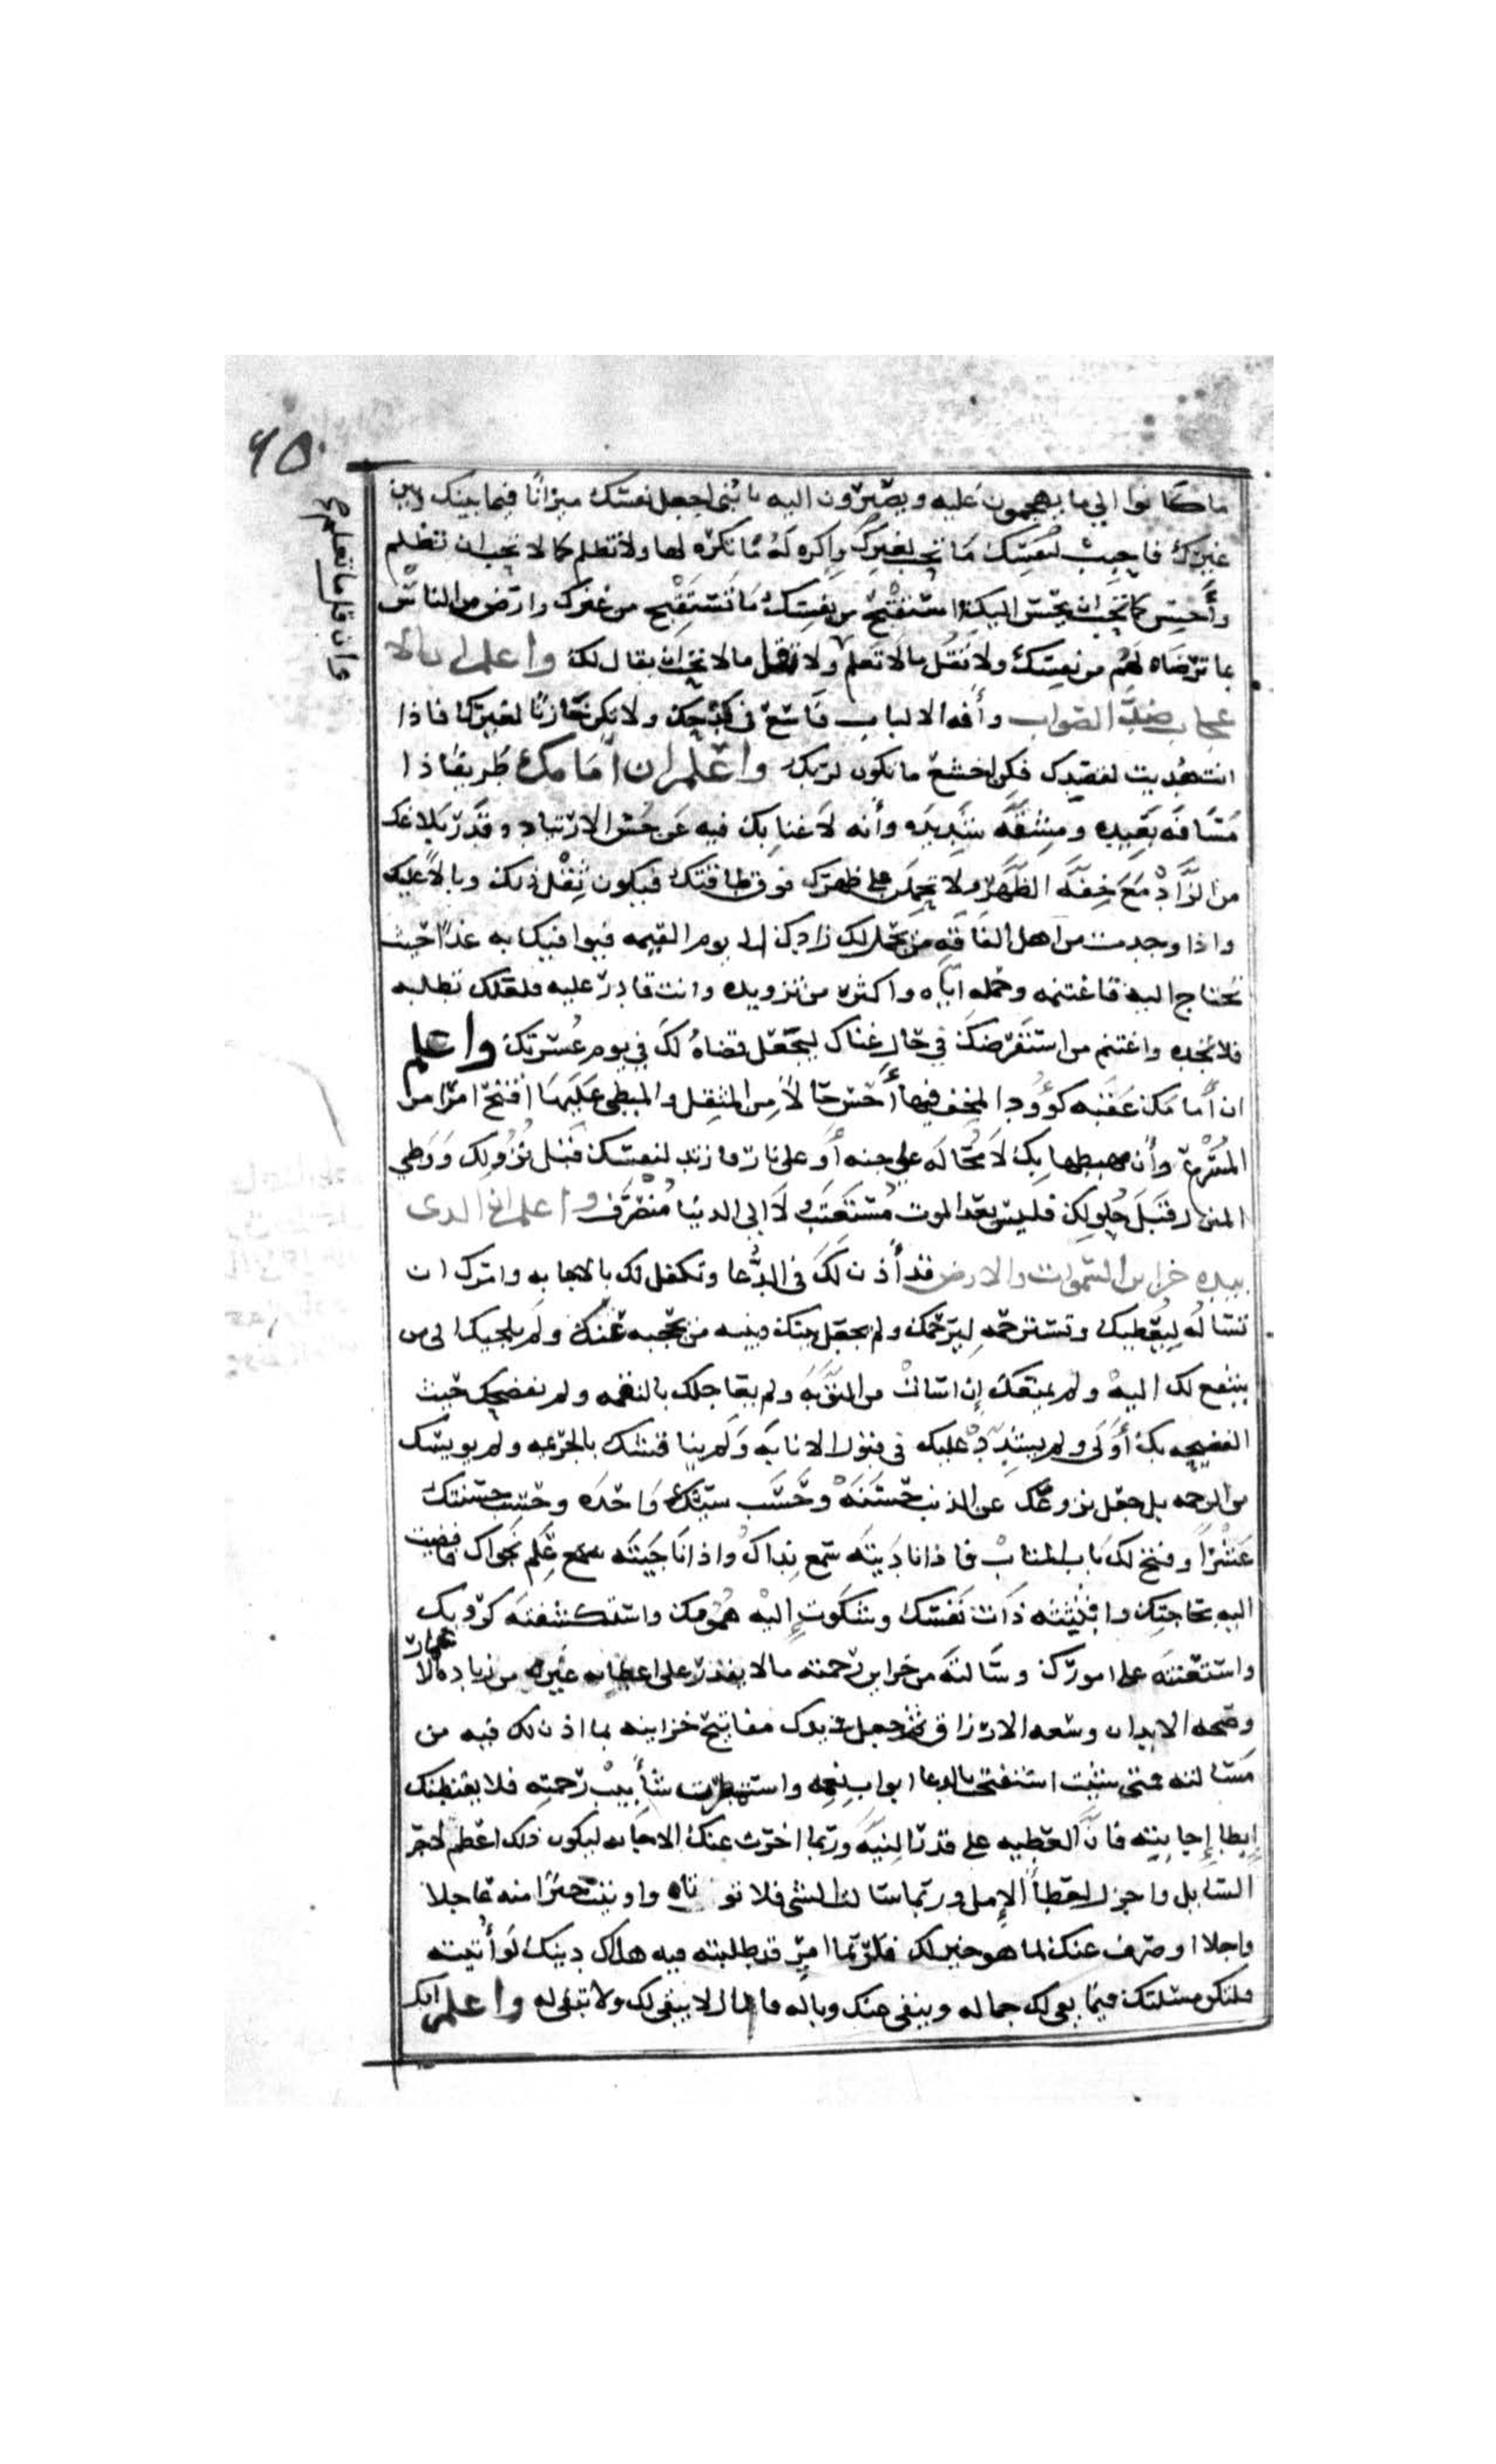 ٩٥
ما كانوا الي ما يهجمون عليه ويصيرون اليه يا بني اجعل نفسك ميزانا فيما بينك وبين
غيرك فاحبب لنفسك ما تحب لغيرك واكره له ما تكره لها ولا تظلم كما لا تحب ان تظلم
وأحسن كما تحب ان يحسن اليك واستقبح من نفسك ما تستقبح من غيرك وارض من الناس
بما ترضاه لهم من نفسك ولا تقل مالا تعلم ولا تقل مالا تحب ان يقال لك واعلم ان الا
وان قل ما تعلم
عجاب ضد الصواب وأفه الالباب فاسع في كدحك ولا تكن خازنا لغيرك فاذا
انت هديت لقصدك فكن اخشع ما تكون لربك واعلم ان أمامك طريقا ذا
مسافه بعيده ومشقه شديده وأنه لا غنا بك فيه عن حسن الارتياد وقدر بلاغك
من الزاد مع خفه الظهر ولا تحملن على ظهرك فوق طاقتك فيكون ثقل ذلك وبالا عليك
واذا وجدت من اهل الفاقه من يحمل لك زادك الى يوم القيمه فيوافيك به غدا حيث
تحتاج اليه فاغتنمه وحمله اياه واكثر من تزويده وانت قادر عليه فلعلك تطلبه
فلا تجده واغتنم من استقرضك في حال غناك ليجعل قضاه لك في يوم عسرتك واعلم
ان أمامك عقبه كؤودا المخف فيها أحسن حالا من المثقل والمبطي عليها اقبح امرا من
المسرع وأن مهبطها بك لا محاله على جنه أو على نار فارتد لنفسك قبل نزولك ووطي
المنزل قبل حلولك فليس بعد الموت مستعتب ولا الى الدنيا منصرف واعلم ان الدى
بيده خزاين السموات والارض قد أذن لك في الدعا وتكفل لك بالاجابه وامرك ان
تساله ليعطيك وتسترحمه ليرحمك ولم يجعل بينك وبينه من يحجبه عنك ولم يلجيك الى من
يشفع لك اليه ولم يمنعك إن اسات من التوبه ولم يعاجلك بالنقمه ولم يفضحك حيث
الفضيحه بك أولى ولم يشدد عليك في قبول الانابه ولم يناقشك بالجريمه ولم يويسك
من الرحمه بل جعل نزوعك عن الذنب حسنه وحسب سيئتك واحده وحسب حسنتك
عشرا وفتح لك باب المتاب فاذا ناديته سمع نداك واذا ناجيته علم نجواك فافضيت
اليه بحاجتك وابثثته ذات نفسك وشكوت إليه همومك واستكشفته كروبك
واستعنته على امورك وسالته من خزاين رحمته مالا يقدر على اعطايه غيره من زياده الا
عمار
وصحه الابدان وسعه الارزاق ثم جعل في يدك مفاتيح خزاينه بما اذن لك فيه من
مسالته فمتى شيت استفتحت بالدعا ابواب نعمه واستمطرت شأبيب رحمته فلا يقنطنك
إبطا إجابته فان العطيه على قدر النيه وربما اخرت عنك الاجابه ليكون ذلك اعظم لاجر
السايل واجزل لعطا الامل وربما سالت الشي فلا توتاه واوتيت خيرا منه عاجلا
واجلا او صرف عنك لما هو خير لك فلربما امر قد طلبته فيه هلاك دينك لو أتيته
فلتكن مسئلتك فيما يبقى لك جماله وينفى عنك وباله فالمال لا يبقى لك ولا تبقى له واعلم انك